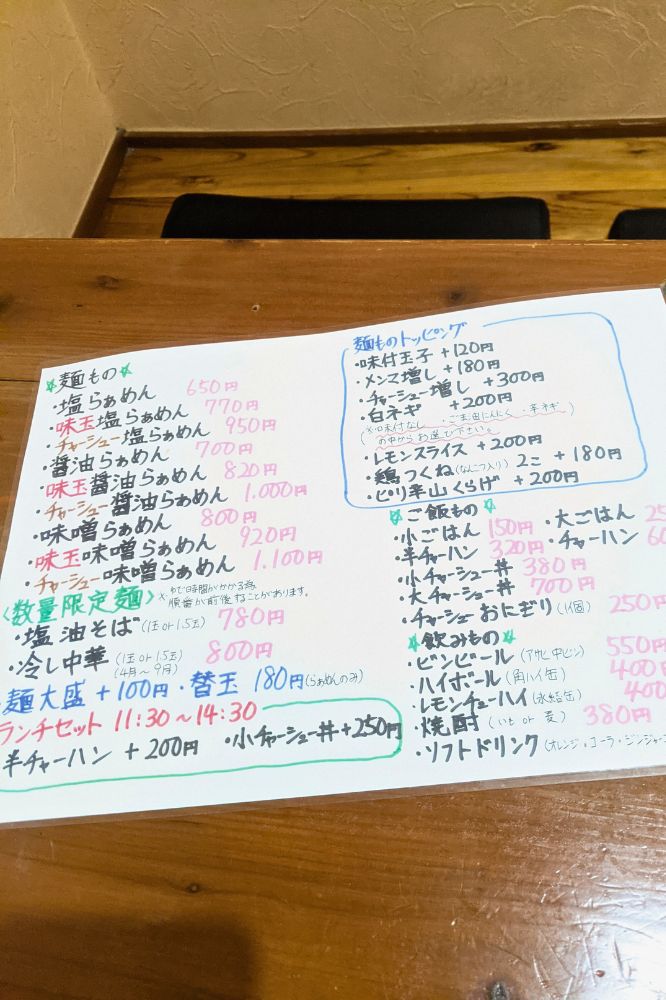 ☆麺もの☆
・塩らぁめん 650円
・味玉塩らぁめん 770円
・チャーシュー塩らぁめん 950円
・醤油らぁめん 700円
・味玉醤油らぁめん 820円
・チャーシュー醤油らぁめん 1.000円
・味噌らぁめん 800円
・味玉味噌らぁめん 920円
・チャーシュー味噌らぁめん 1.100円
〈数量限定麺〉 ※ゆで時間がかかる為
順番が前後することがあります。
・塩油そば (1玉or1.5玉) 780円
・冷し中華 (1玉or1.5玉) 800円
(4月〜9月)
麺大盛 +100円 ・替玉 180円(らぁめんのみ)
ランチセット 11:30〜14:30
半チャーハン +200円 ・小チャーシュー丼+250円
麺ものトッピング
・味付玉子 +120円
・メンマ増し +180円
・チャーシュー増し +300円
・白ネギ +200円
(※味付なし・ごま油にんにく・辛ネギ
の中からお選び下さい。)
・レモンスライス +200円
・鶏つくね(なんこつ入り) 2コ +180円
・ピリ辛山くらげ +200円
☆ご飯もの☆
・小ごはん 150円 ・大ごはん
・半チャーハン 320円 ・チャーハン
・小チャーシュー丼 380円
・大チャーシュー丼 700円
・チャーシューおにぎり(1個) 250円
☆飲みもの☆
・ビンビール (アサヒ中ビン) 550円
・ハイボール (角ハイ缶) 400円
・レモンチューハイ (氷結缶) 400
・焼酎 (いも or 麦) 380円
・ソフトドリンク (オレンジ・コーラ・ジンジャー